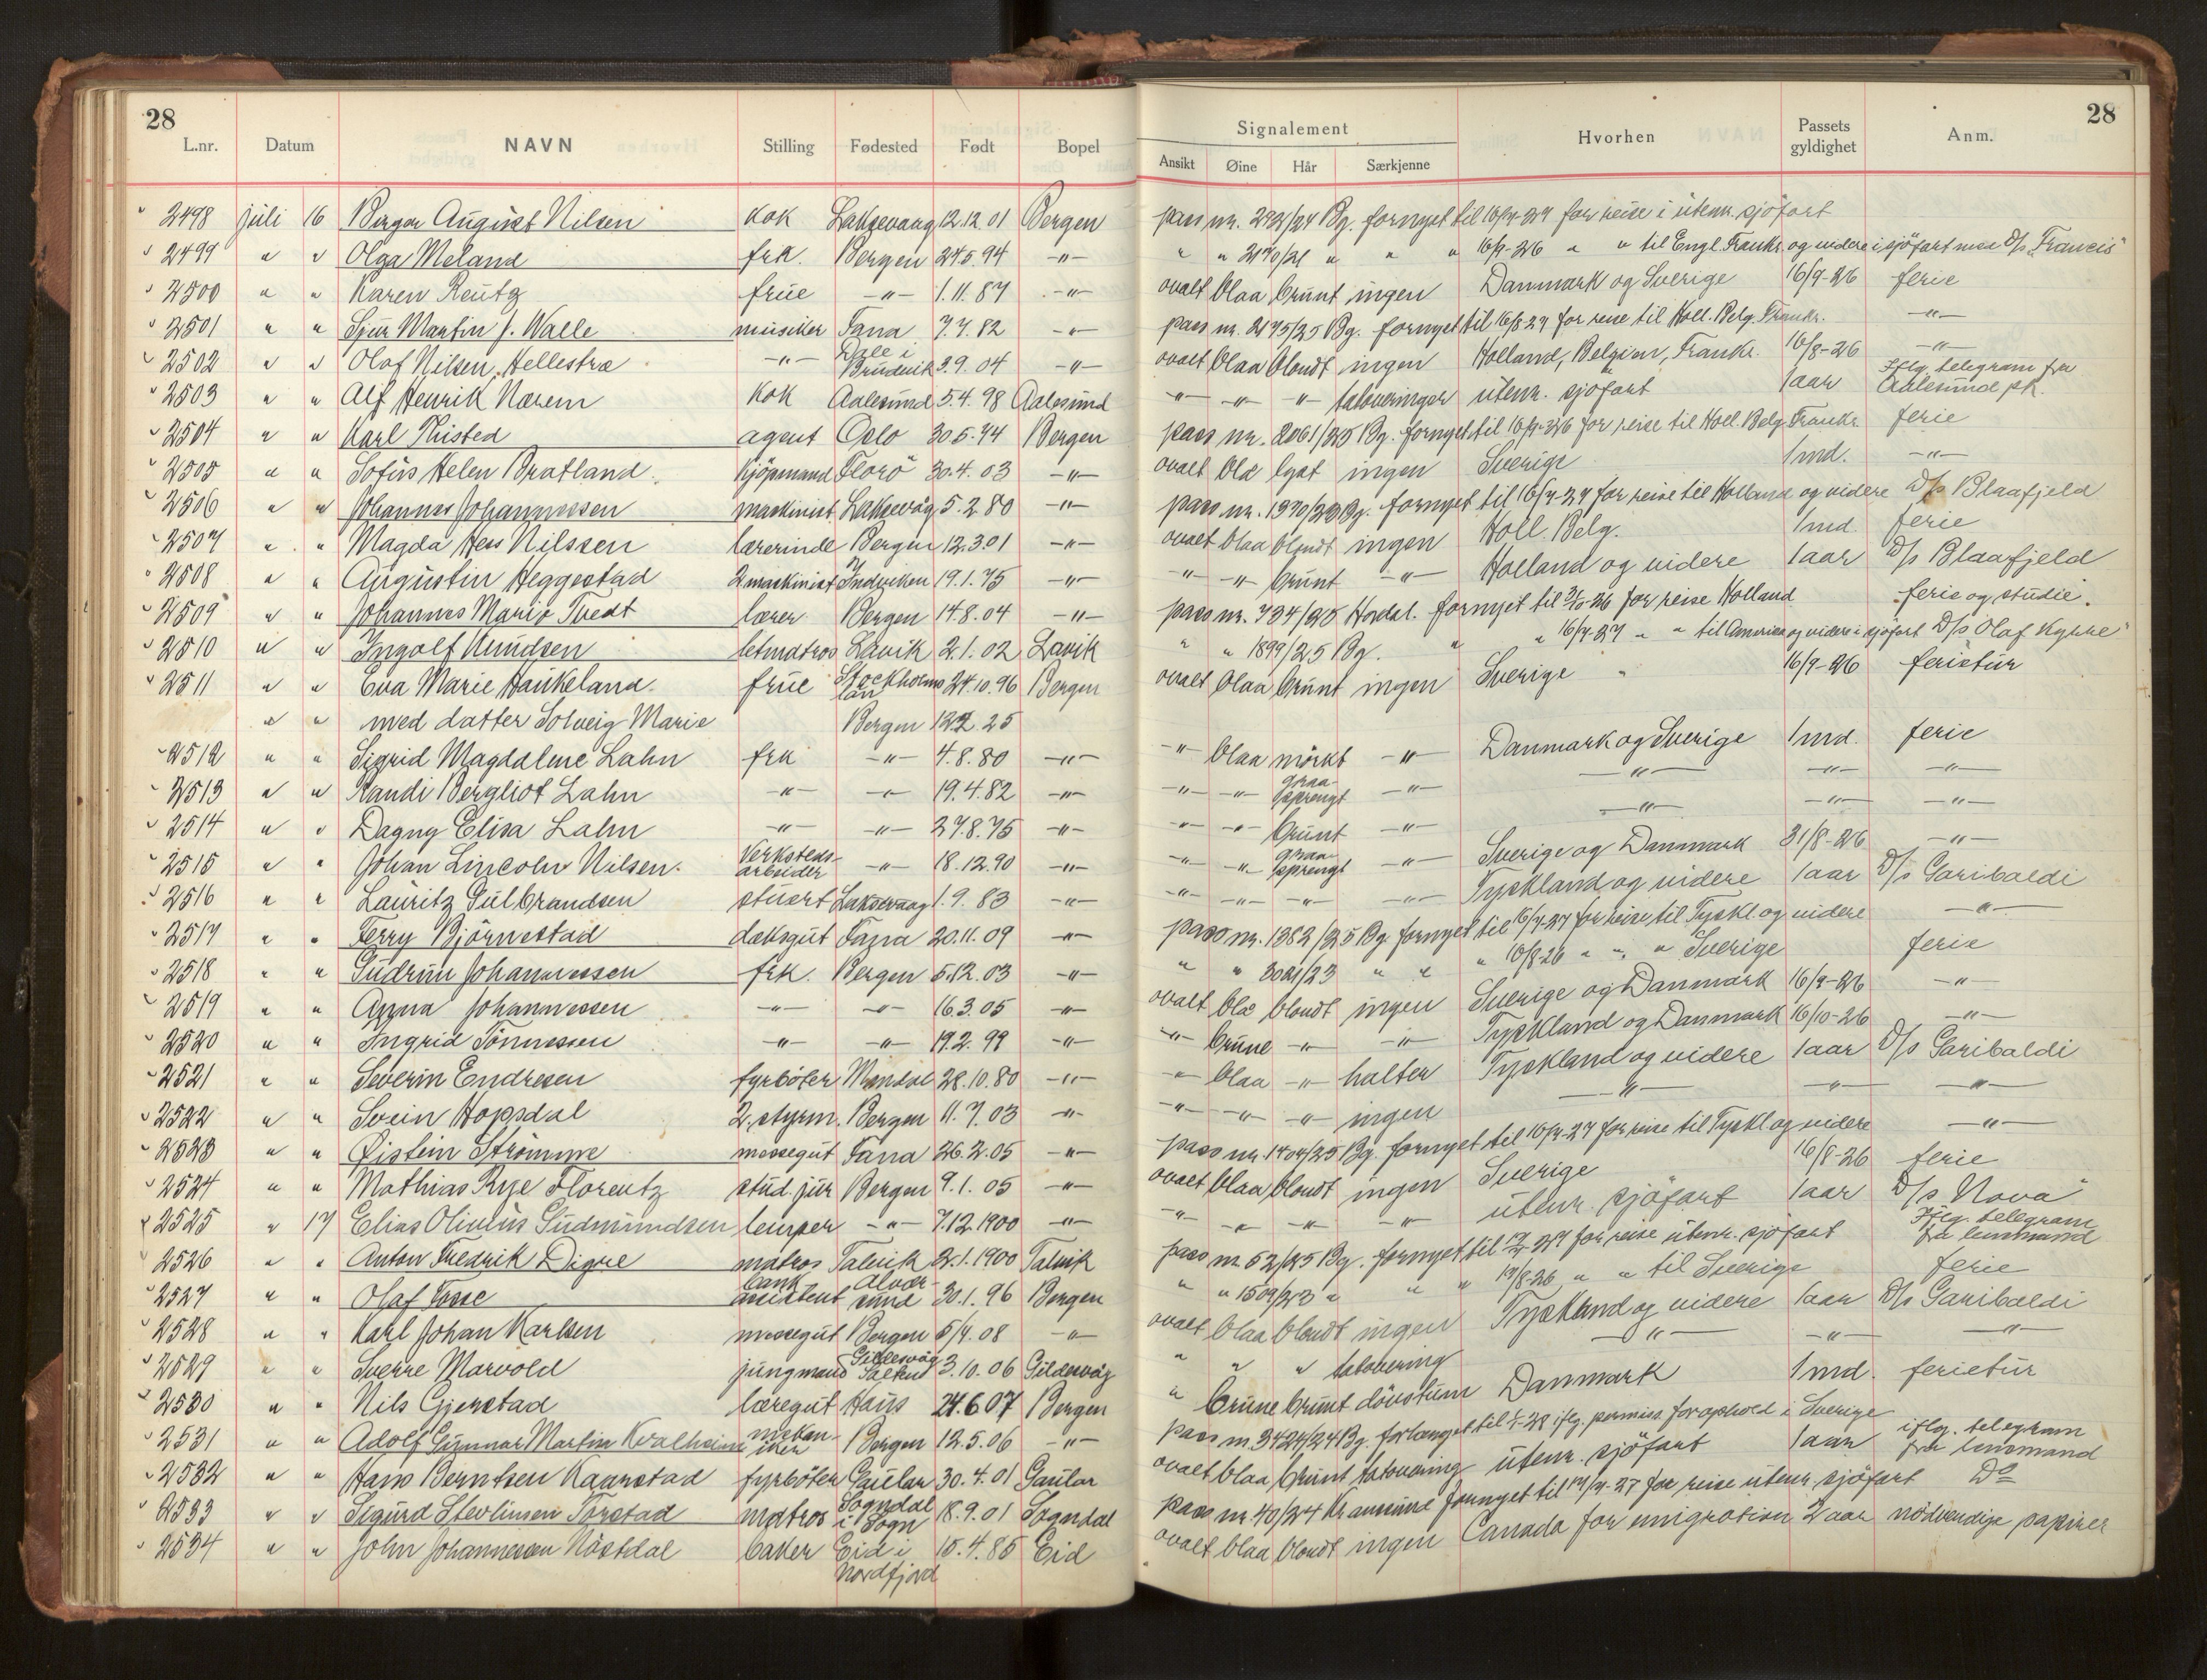 28
L.nr. Datum NAVN Stilling Fødested Født Bopel
2498 juli 16 Birger August Nilsen kok Laksevaag 12.12.01 Bergen
2499 " " Olga Meland frk. Bergen 24.5.94 -"-
2500 " " Karen Reutz frue -"- 1.11.87 -"-
2501 " " Sjur Martin J. Walle musiker Fana 7.7.82 -"-
2502 " " Olaf Nilsen Hellestræ -"- Dale i Bruvik 3.9.04 -"-
2503 " " Alf Henrik Nærem kok Aalesund 5.4.98 Aalesund
2504 " " Karl Thisted agent Oslo 30.5.74 Bergen
2505 " " Sofus Helen Bratland kjöpmand Florö 30.4.03 -"-
2506 " " Johannes Johannessen maskinist Laksevåg 5.2.80 -"-
2507 " " Magda Hess Nilssen lærerinde Bergen 12.3.01 -"-
2508 " " Augustin Heggestad 2 maskinist Indviken 19.1.75 -"-
2509 " " Johannes Mario Tvedt lærer Bergen 14.8.04 -"-
2510 " " Ingolf Knudsen letmatros Lavik 2.1.02 Lavik
2511 " " Eva Marie Haukeland frue Stockholms län 24.10.96 Bergen
" " med datter Solveig Marie Bergen 25
2512 " " Sigrid Magdalene Lahn frk -"- 4.8.80 -"-
2513 " " Randi Bergliot Lahn -"- -"- 19.4.82 -"-
2514 " " Dagny Elisa Lahn -"- -"- 27.8.75 -"-
2515 " " Johan Lincoln Nilsen Verksteds-arbeider -"- 18.12.90 -"-
2516 " " Lauritz Gulbrandsen stuert Laksevaag 1.9.83 -"-
2517 " " Ferry Björnestad dæksgut Fana 20.11.09 -"-
2518 " " Gudrun Johannessen frk. Bergen 5.12.03 -"-
2519 " " Anna Johannessen -"- -"- 16.3.05 -"-
2520 " " Ingrid Tönnessen -"- -"- 19.2.99 -"-
2521 " " Severin Endresen fyrböter Mandal 28.10.80 -"-
2522 " " Svein Hopsdal 2. styrm. Bergen 11.7.03 -"-
2523 " " Øistein Strömme messegut Fana 26.2.05 -"-
2524 " " Mathias Rye Florentz stud. jur Bergen 9.1.05 -"-
2525 " 17 Elias Olinius Gudmundsen lemper -"- 7.12.1900 -"-
2526 " " Anton Fredrik Digre matros Talvik 2.1.1900 Talvik
2527 " " Olaf Fosse bankassistent Alversund 30.1.96 Bergen
2528 " " Karl Johan Karlsen messegut Bergen 5/4.08 -"-
2529 " " Sverre Marvold jungmand Gildesvåg Salten 3.10.06 Gildesvåg
2530 " " Nils Gjerstad læregut Haus 24.6.07 Bergen
2531 " " Adolf Gunnar Martin Kvalheim mekaniker Bergen 12.5.06 -"-
2532 " " Hans Berntsen Kaarstad fyrböter Gaular 30.4.01 Gaular
2533 " " Sigurd Torstad matros Sogndal i Sogn 18.9.01 Sogndal
2534 " " John Johannesen Nöstdal baker Eid i Nordfjord 15.4.85 Eid
28
Signalement Hvorhen Passets gyldighet Anm.
Ansikt Øine Hår Særkjenne
pass nr. 2921/24 Bg. fornyet til 16/7-27 for reise i utenr. sjöfart
" " 2170/21 " " " 16/9-26 " " til Engl. Frankr. og videre i sjöfart med D/s "Francis"
ovalt blaa brunt ingen Danmark og Sverige 16/9-26 ferie
pass nr. 2175/25 Bg. fornyet til 16/8 27 for reise til Holl. Belg. Frankr. -"-
ovalt blaa blondt ingen Holland, Belgien, Frankr. 16/8-26 -"-
-"- -"- -"- tatoveringer utenr. sjöfart 1 aar Iflg. telegram fra Aalesund pk.
pass nr. 2061/25 Bg. fornyet til 16/9-26 for reise til Holl. Belg. Frankr. ferie
ovalt blå lyst ingen Sverige 1 md. -"-
pass nr. 1370/23 Bg. fornyet til 16/7-27 for reise til Holland og videre D/s Blaafjeld
ovalt blaa blondt ingen Holl. Belg. 1 md. ferie
-"- -"- brunt -"- Holland og videre 1 aar D/s Blaafjeld
pass nr. 734/25 Hordal. fornyet til 3/10-26 for reise Holland ferie og studie.
" " 1899/25 Bg. " " 16/7-27 " " til Amerika og videre i sjöfart D/s "Olaf Kyrre"
ovalt blaa brunt ingen Sverige 16/9-26 ferietur
-"- blaa mörkt -"- Danmark og Sverige 1 md. ferie
-"- -"- graasprengt -"- -"- -"- -"-
-"- -"- brunt -"- -"- -"- -"-
-"- -"- graasprengt -"- Sverige og Danmark 31/8-26 -"-
-"- -"- -"- -"- Tyskland og videre 1 aar D/s Garibaldi
pass nr. 1382/25 Bg. fornyet til 16/7-27 for reise til Tyskl. og videre -"-
" " 3021/23 " " " 16/8 26 " " " Sverige ferie
ovalt blå blondt ingen Sverige og Danmark 16/9-26 -"-
-"- brune -"- -"- Tyskland og Danmark 16/10-26 -"-
-"- blaa -"- halter Tyskland og videre 1 aar D/s Garibaldi
-"- -"- -"- ingen -"- -"- -"-
pass nr. 1404/25 Bg. fornyet til 16/7-27 for reise til Tyskl og videre -"-
ovalt blaa blondt ingen Sverige 16/8-26 ferie
-"- -"- -"- -"- utenr. sjöfart 1 aar D/s "Nova"
pass nr. 52/25 Bg. fornyet til 17/7-27 for reise utenr. sjöfart Iflg. telegram fra lensmand
" " 1509/23 " " " 17/8-26 " " til Sverige ferie
ovalt blaa blondt ingen Tyskland og videre 1 aar D/s Garibaldi
" " " tatovering -"- -"- -"-
" brune brunt dövstum Danmark 1 md. ferietur
pass nr. 3424/24 Bg. forlænget til 28 iflg. permiss. for ophold i Sverige
ovalt blaa brunt tatovering utenr. sjöfart 1 aar iflg. telegram fra lensmand
pass nr. 40/24 Kr.ansund fornyet til 17/7-27 for reise utenr. sjöfart Do
ovalt blaa blondt ingen Canada for emigration 2 aar nödvendige papirer